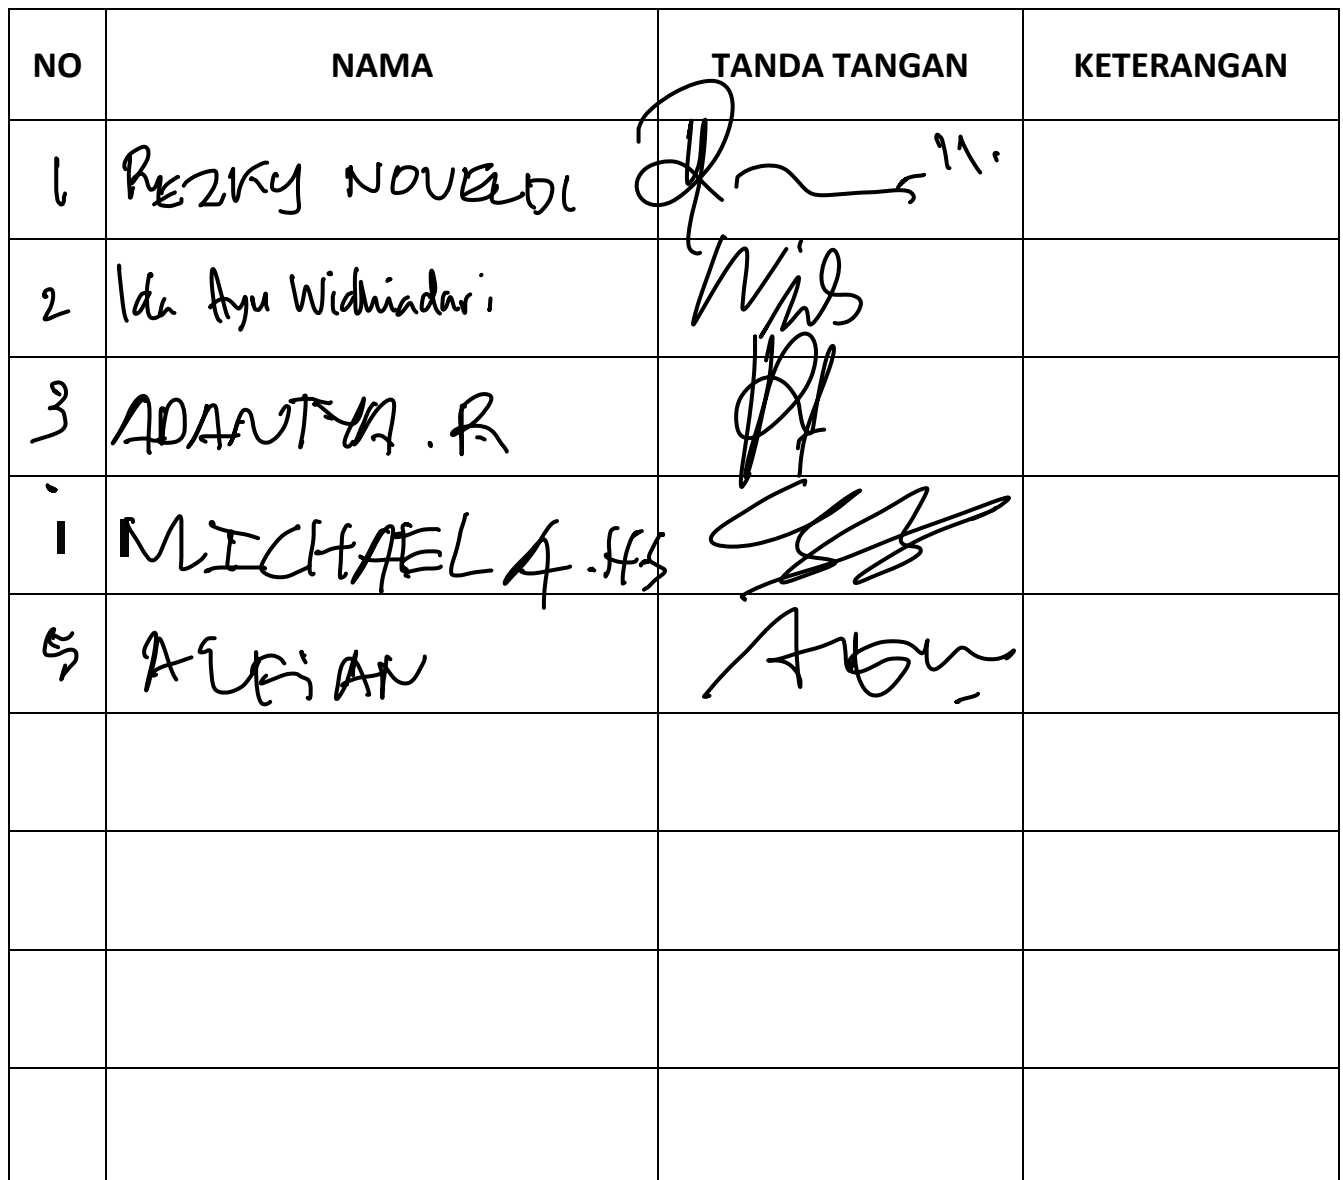 NO NAMA TANDA TANGAN KETERANGAN
1 REZKY NOVELDI
2 Ida Ayu Widhiadari
3 ADANTYA . R
i MICHAEL A . HS
5 ALFIAN